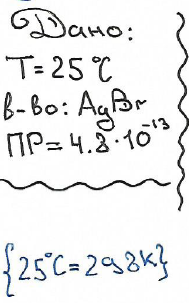 Дано:
T = 25 °C
в-во: AgBr
ПР = 4.8 · 10⁻¹³
{25°C = 298K}